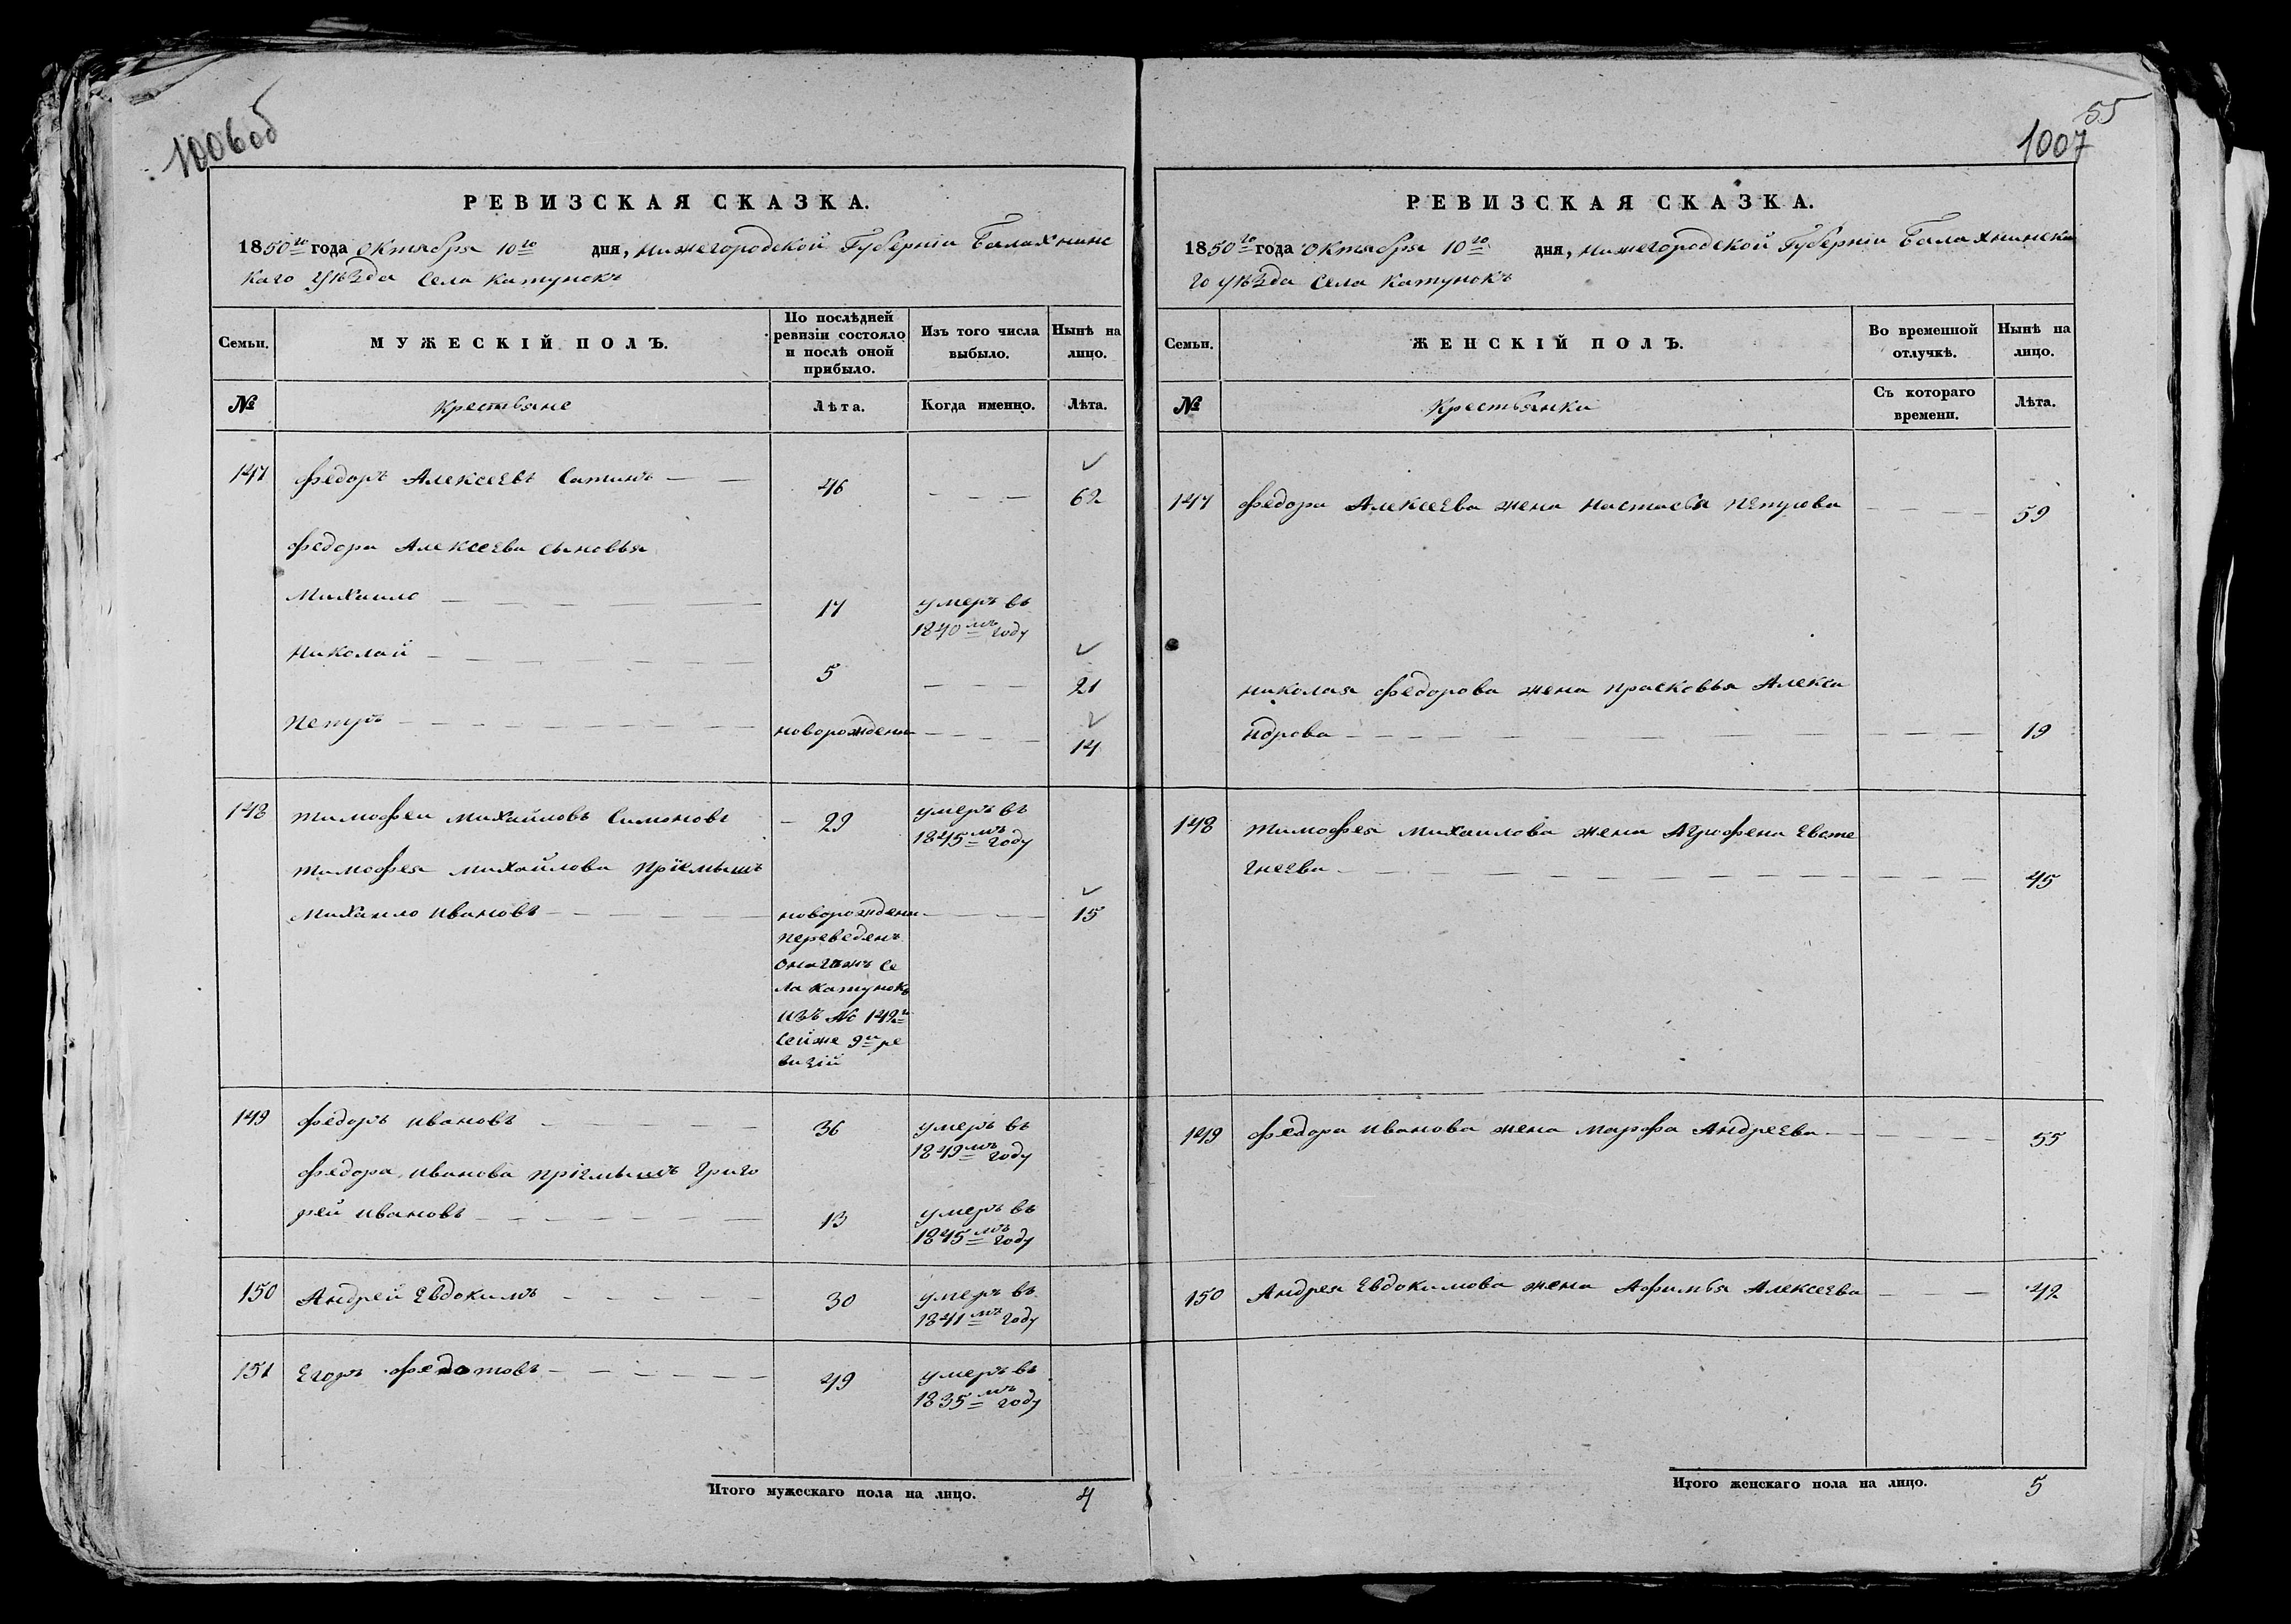 1006об
РЕВИЗСКАЯ СКАЗКА.
1850го года Октября 10го дня, Нижегородской Губерніи Балахнинс
каго Уѣзда Села Катунокъ
Семьи.
МУЖЕСКІЙ ПОЛЪ.
По послѣдней ревизіи состояло и послѣ оной прибыло.
Изъ того числа выбыло.
Нынѣ на лицо.
№
Крестьяне
Лѣта.
Когда именно.
Лѣта.
147 Федоръ Алексеевъ Сатинъ 46 62
Федора Алексеева сыновья
Михаило 17 умеръ въ
1840мъ году
Николай 5 21
Петръ новорожденн 14
148 Тимофеи Михайловъ Симоновъ 29 умеръ въ
1845мъ году
Тимофея Михайлова Пріемышъ
Михаило Ивановъ новорожденн 15
переведенъ
Се
ла Катунокъ
изъ № 142и
сейже 9и ре
визій
149 Федоръ Ивановъ 36 умеръ въ
1849мъ году
Федора Иванова Пріемышъ Григо
рей Ивановъ 13 умеръ въ
1845мъ году
150 Андрей Евдокимъ 30 умеръ въ
1841мъ году
151 Егоръ Федотовъ 49 умеръ въ
1835мъ году
Итого мужескаго пола на лицо. 4
55
1007
РЕВИЗСКАЯ СКАЗКА.
1850го года Октября 10го дня, Нижегородской Губерніи Балахнинска
го Уѣзда Села Катунокъ
Семьи.
ЖЕНСКІЙ ПОЛЪ.
Во временной отлучкѣ.
Нынѣ на лицо.
№
Крестьянки
Съ котораго времени.
Лѣта.
147 Федора Алексеева жена Настасья Петрова 59
Николая Федорова жена Прасковья Алекса
ндрова 19
148 Тимофея Михаилова жена Агрофена Евсте
гнеева 45
149 Федора Иванова жена Марфа Андреева 55
150 Андрея Евдокимова жена Афимья Алексеева 42
Итого женскаго пола на лицо. 5